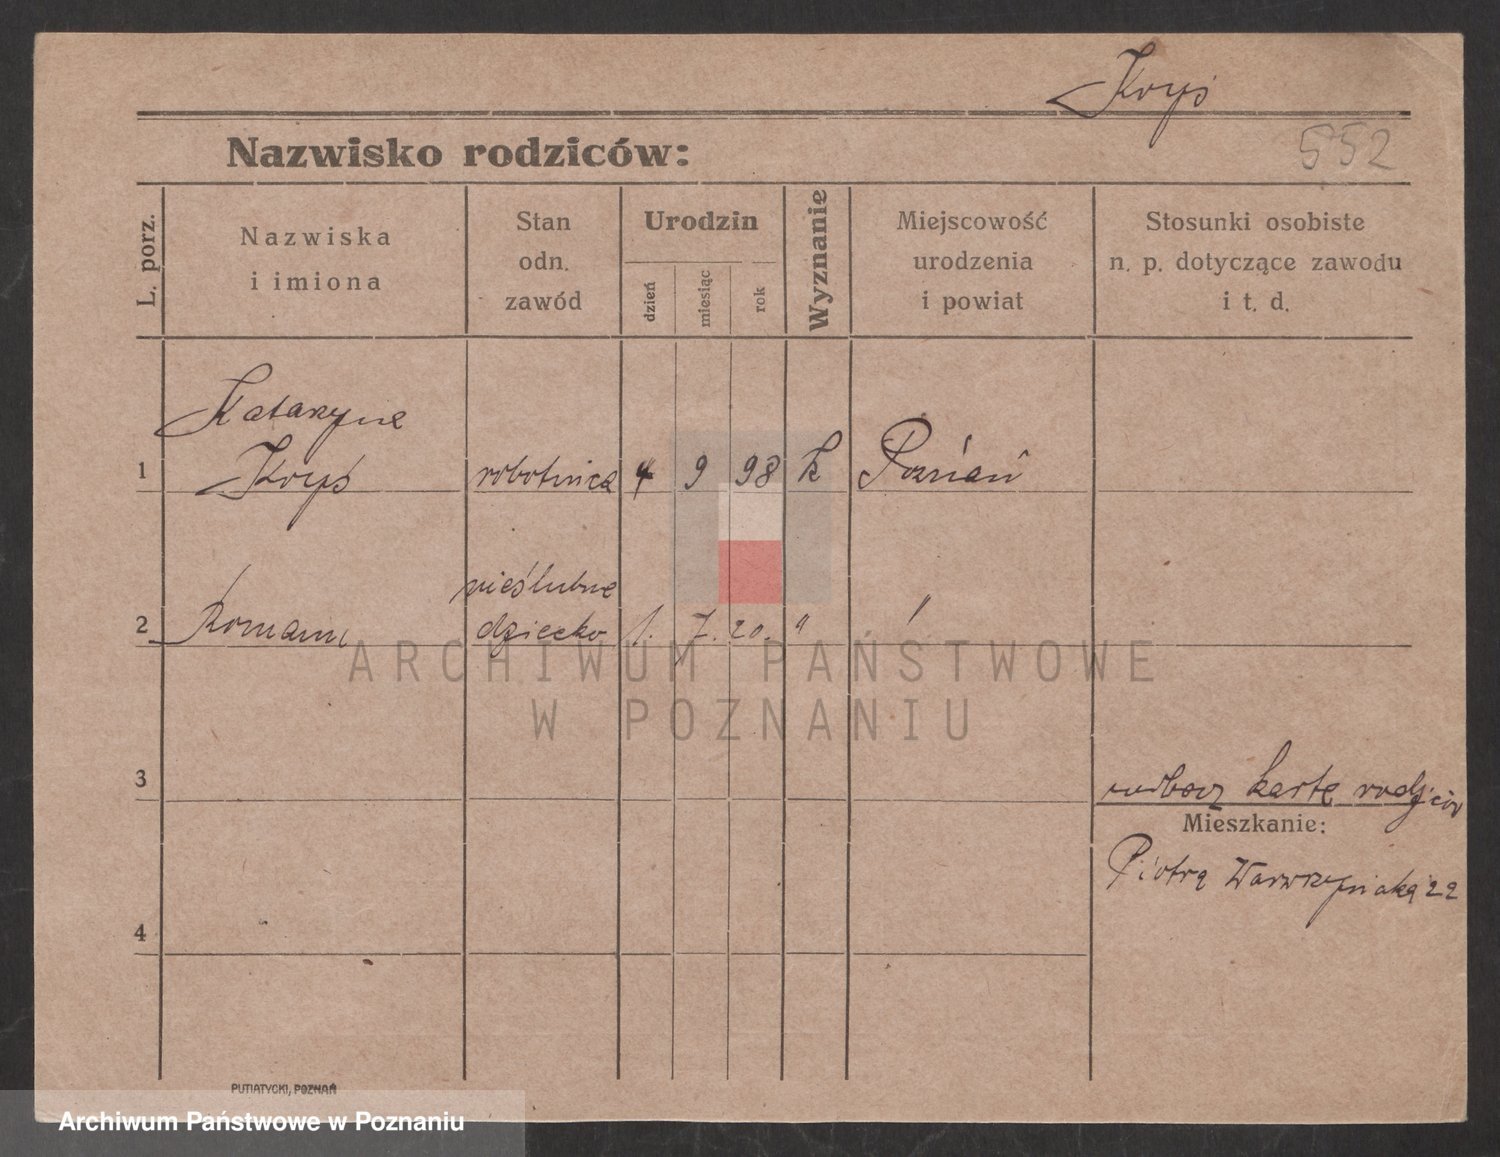 Koryś
552
Nazwisko rodziców:
L. porz.
Nazwiska
i imiona
Stan
odn.
zawód
Urodzin
dzień
miesiąc
rok
Wyznanie
Miejscowość
urodzenia
i powiat
Stosunki osobiste
n. p. dotyczące zawodu
i t. d.
Kataryna
1 Koryś robotnica 4 9 98 k Poznań
nieślubne
2 Roman dziecko 1. 7. 20. " "
ARCHIWUM PAŃSTWOWE
W POZNANIU
3 kartę rodziców
Mieszkanie:
Piotra Wawrzyniaka 22
4
PUTIATYCKI, POZNAŃ
Archiwum Państwowe w Poznaniu